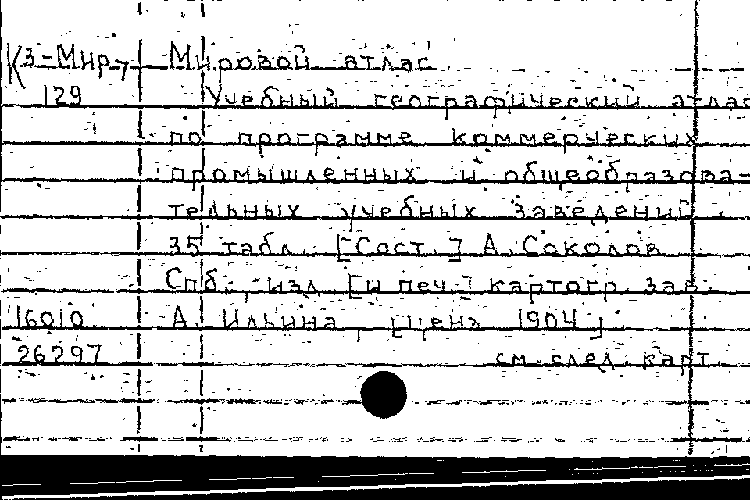 К3-Мир-7 Мировой атлас.
129 Учебный географический атлас
по программе коммерческих
промышленных и общеобразова-
тельных учебных заведений.
35 табл. [Сост.] А. Соколов
Спб., изд. [и печ.] картогр. зав.
16010 А. Ильина, [ценз 1904].
26297 см. след. карт.